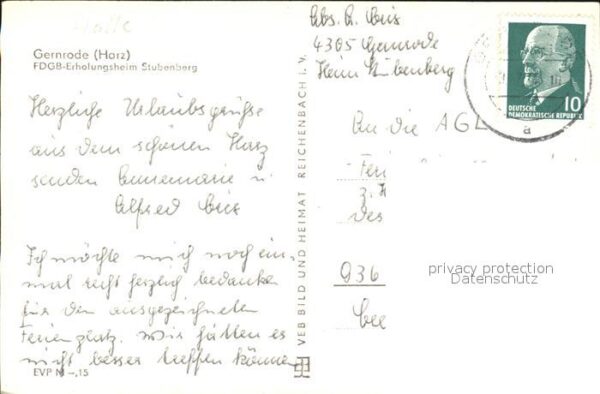 Gernrode (Harz)
FDGB-Erholungsheim Stubenberg
Herzliche Urlaubsgrüße
aus dem schönen Harz
senden Annemarie u
Alfred
Ich möchte mich noch ein-
mal recht herzlich bedanken
für den ausgezeichneten
Ferienplatz. Wir hätten es
nicht besser treffen können
EVP M -,15
VEB BILD UND HEIMAT REICHENBACH I. V.
Abs. A.
4305 Gernrode
Heim Stubenberg
DEUTSCHE 10
DEMOKRATISCHE REPUBLIK
a
An die AGL
Feri
z. H
des
936
bee
privacy protection
Datenschutz